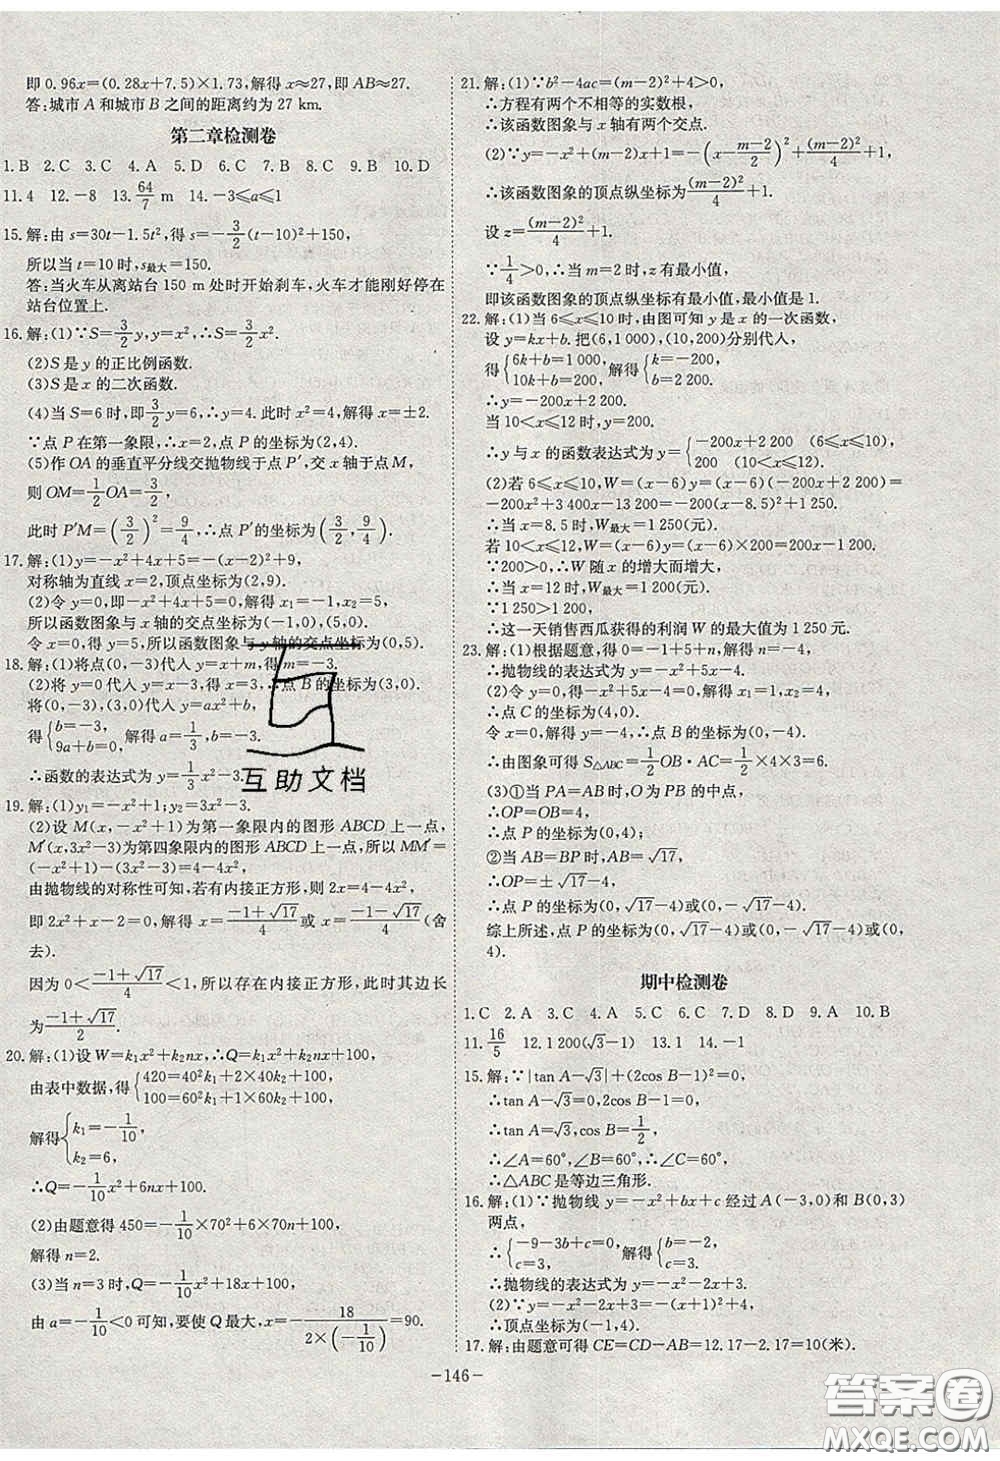 即 0.96x=(0.28x+7.5)×1.73,解得 x≈27,即 AB≈27.
答:城市 A 和城市 B 之间的距离约为 27 km.
第二章检测卷
1.B 2.C 3.C 4.A 5.D 6.C 7.B 8.C 9.B 10.D
11.4 12.-8 13.64/7 m 14.-3≤a≤1
15.解:由 s=30t-1.5t²,得 s=-3/2(t-10)²+150,
所以当 t=10 时,s最大=150.
答:当火车从离站台 150 m 处时开始刹车,火车才能刚好停在
站台位置上.
16.解:(1)∵S=3/2y,y=x²,∴S=3/2x².
(2)S 是 y 的正比例函数.
(3)S 是 x 的二次函数.
(4)当 S=6 时,即3/2y=6,∴y=4.此时 x²=4,解得 x=±2.
∵点 P 在第一象限,∴x=2,点 P 的坐标为(2,4).
(5)作 OA 的垂直平分线交抛物线于点 P′,交 x 轴于点 M,
则 OM=1/2OA=3/2,
此时 P′M=(3/2)²=9/4,∴点 P′的坐标为(3/2,9/4).
17.解:(1)y=-x²+4x+5=-(x-2)²+9,
对称轴为直线 x=2,顶点坐标为(2,9).
(2)令 y=0,即-x²+4x+5=0,解得 x₁=-1,x₂=5,
所以函数图象与 x 轴的交点坐标为(-1,0),(5,0).
令 x=0,得 y=5,所以函数图象与 y 轴的交点坐标为(0,5).
18.解:(1)将点(0,-3)代入 y=x+m,得 m=-3.
(2)将 y=0 代入 y=x-3,得 x=3,∴点 B 的坐标为(3,0).
将(0,-3),(3,0)代入 y=ax²+b,
得{b=-3, 9a+b=0,解得 a=1/3,b=-3.
∴函数的表达式为 y=1/3x²-3.
互助文档
19.解:(1)y₁=-x²+1;y₂=3x²-3.
(2)设 M(x,-x²+1)为第一象限内的图形 ABCD 上一点,
M′(x,3x²-3)为第四象限内的图形 ABCD 上一点,所以 MM′=
(-x²+1)-(3x²-3)=4-4x²,
由抛物线的对称性可知,若有内接正方形,则 2x=4-4x²,
即 2x²+x-2=0,解得 x=(-1+√17)/4或 x=(-1-√17)/4(舍
去).
因为 0<(-1+√17)/4<1,所以存在内接正方形,此时其边长
为(-1+√17)/2.
20.解:(1)设 W=k₁x²+k₂nx,∴Q=k₁x²+k₂nx+100,
由表中数据,得{420=40²k₁+2×40k₂+100, 100=60²k₁+1×60k₂+100,
解得{k₁=-1/10, k₂=6,
∴Q=-1/10x²+6nx+100.
(2)由题意得 450=-1/10×70²+6×70n+100,
解得 n=2.
(3)当 n=3 时,Q=-1/10x²+18x+100.
由 a=-1/10<0 可知,要使 Q 最大,x=-18/(2×(-1/10))=90.
21.解:(1)∵b²-4ac=(m-2)²+4>0,
∴方程有两个不相等的实数根,
∴该函数图象与 x 轴有两个交点.
(2)∵y=-x²+(m-2)x+1=-(x-(m-2)/2)²+(m-2)²/4+1,
∴该函数图象的顶点纵坐标为(m-2)²/4+1.
设 z=(m-2)²/4+1.
∵1/4>0,∴当 m=2 时,z 有最小值,
即该函数图象的顶点纵坐标有最小值,最小值是 1.
22.解:(1)当 6≤x≤10 时,由图可知 y 是 x 的一次函数,
设 y=kx+b.把(6,1 000),(10,200)分别代入,
得{6k+b=1 000, 10k+b=200,解得{k=-200, b=2 200.
∴y=-200x+2 200.
当 10<x≤12 时,y=200.
∴y 与 x 的函数表达式为 y={-200x+2 200 (6≤x≤10) 200 (10<x≤12)
(2)若 6≤x≤10,W=(x-6)y=(x-6)(-200x+2 200)=
-200x²+3 400x-13 200=-200(x-8.5)²+1 250.
∴当 x=8.5 时,W最大=1 250(元).
若 10<x≤12,W=(x-6)y=(x-6)×200=200x-1 200.
∵200>0,∴W 随 x 的增大而增大,
∴当 x=12 时,W最大=1 200(元).
∵1 250>1 200,
∴这一天销售西瓜获得的利润 W 的最大值为 1 250 元.
23.解:(1)根据题意,得 0=-1+5+n,解得 n=-4,
∴抛物线的表达式为 y=-x²+5x-4.
(2)令 y=0,得-x²+5x-4=0,解得 x₁=1,x₂=4,
∴点 C 的坐标为(4,0).
令 x=0,解得 y=-4,∴点 B 的坐标为(0,-4).
∴由图象可得 S△ABC=1/2OB·AC=1/2×4×3=6.
(3)①当 PA=AB 时,则 O 为 PB 的中点,
∴OP=OB=4.
∴点 P 的坐标为(0,4);
②当 AB=BP 时,AB=√17,
∴OP=±√17-4,
∴点 P 的坐标为(0,√17-4)或(0,-√17-4).
综上所述,点 P 的坐标为(0,√17-4)或(0,-√17-4)或(0,
4).
期中检测卷
1.C 2.A 3.C 4.A 5.C 6.C 7.D 8.D 9.A 10.B
11.16/5 12.1 200(√3-1) 13.1 14.-1
15.解:∵|tan A-√3|+(2cos B-1)²=0,
∴tan A-√3=0,2cos B-1=0,
∴tan A=√3,cos B=1/2,
∴∠A=60°,∠B=60°,∴∠C=60°,
∴△ABC 是等边三角形.
16.解:(1)∵抛物线 y=-x²+bx+c 经过 A(-3,0)和 B(0,3)
两点,
∴{-9-3b+c=0, c=3,解得{b=-2, c=3.
∴抛物线的表达式为 y=-x²-2x+3.
(2)∵y=-x²-2x+3=-(x+1)²+4,
∴顶点坐标为(-1,4).
17.解:由题意可得 CE=CD-AB=12.17-2.17=10(米).
-146-
答案圈
MXQE.COM